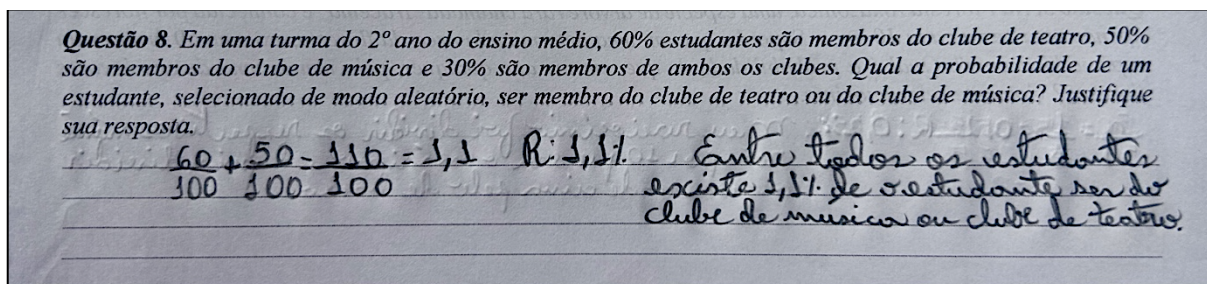 Questão 8. Em uma turma do 2º ano do ensino médio, 60% estudantes são membros do clube de teatro, 50%
são membros do clube de música e 30% são membros de ambos os clubes. Qual a probabilidade de um
estudante, selecionado de modo aleatório, ser membro do clube de teatro ou do clube de música? Justifique
sua resposta.
60/100 + 50/100 = 110/100 = 1,1 R: 1,1% Entre todos os estudantes
existe 1,1% de o estudante ser do
clube de musica ou clube de teatro.